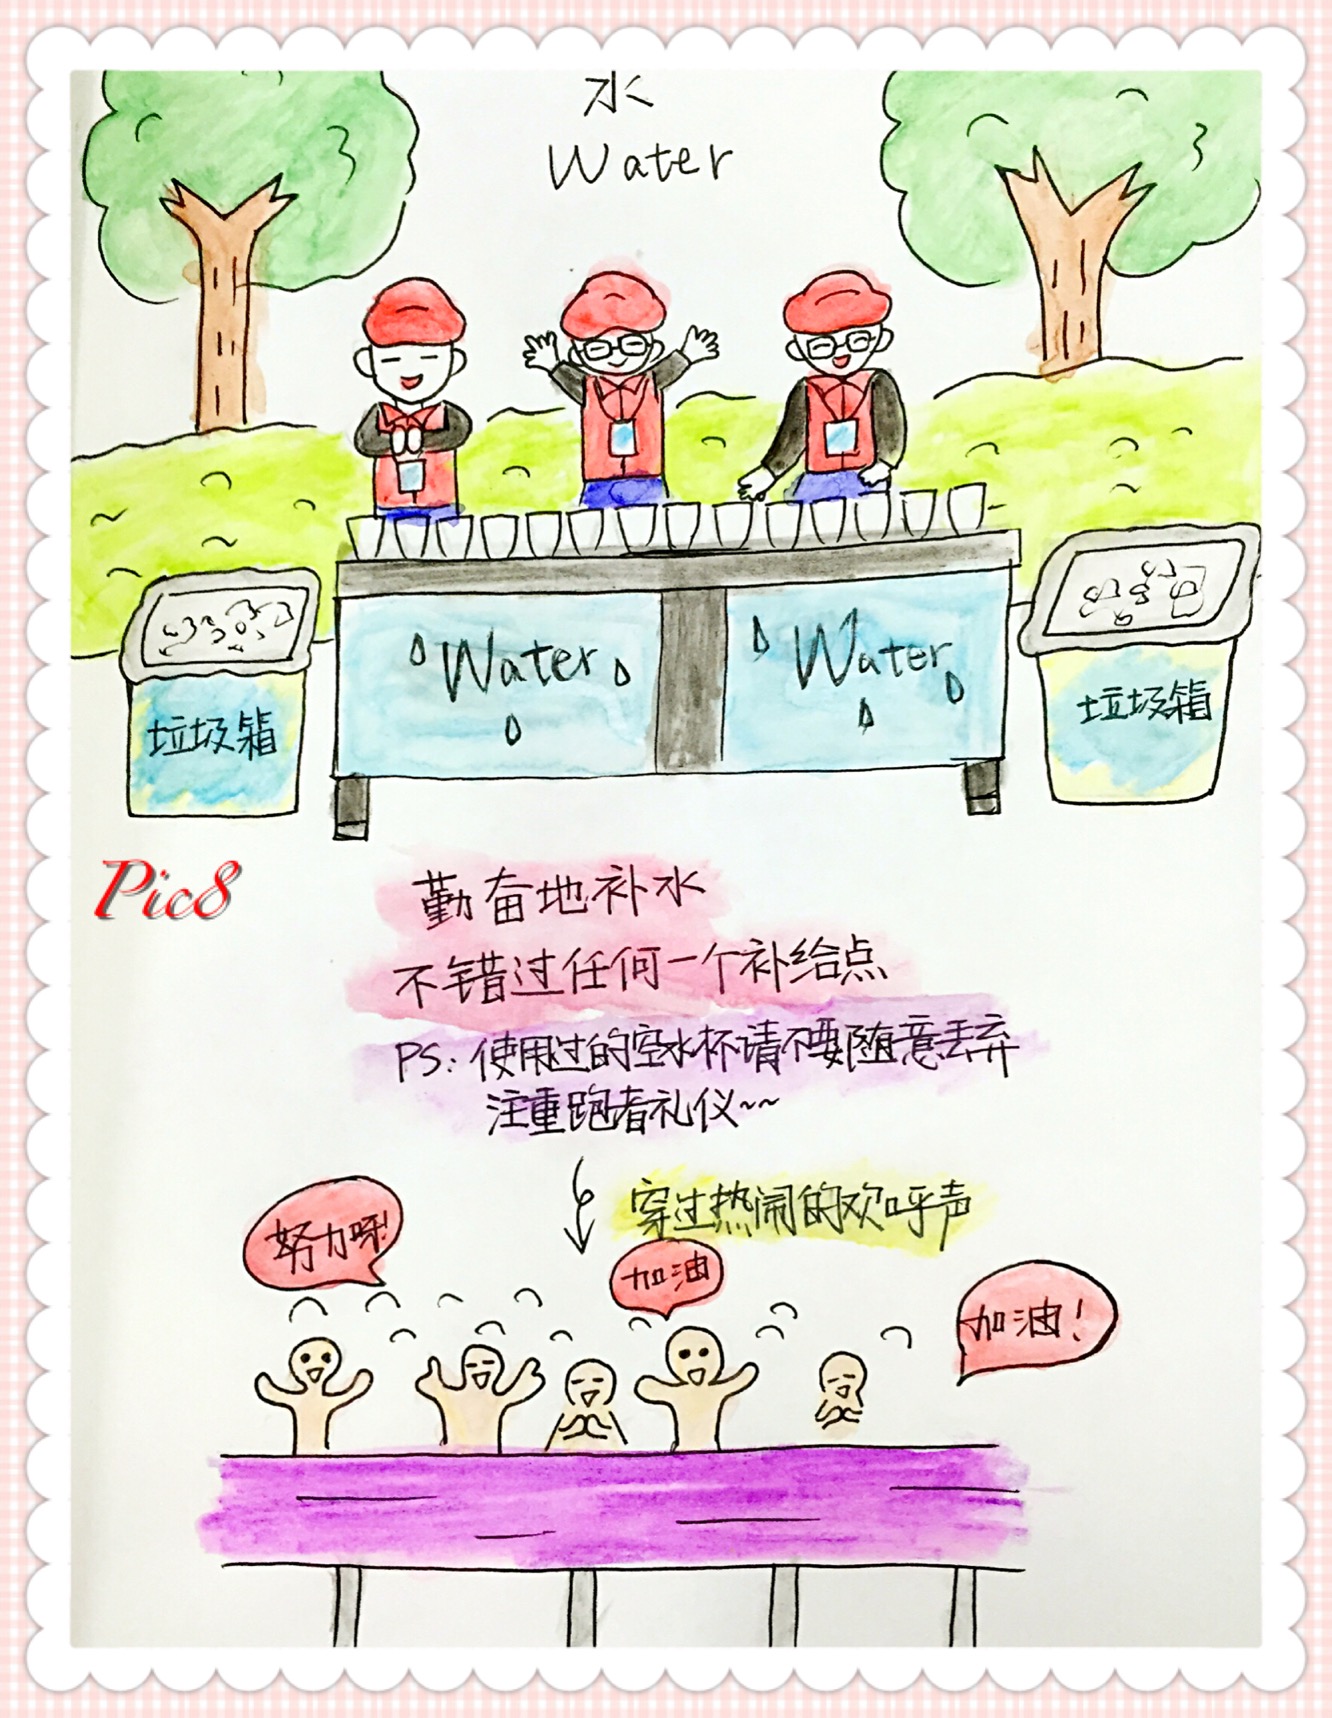 水
Water
Water
Water
垃圾箱
垃圾箱
Pic8
勤奋地补水
不错过任何一个补给点
PS:使用过的空水杯请不要随意丢弃
注重跑者礼仪~~
穿过热闹的欢呼声
努力呀!
加油
加油!